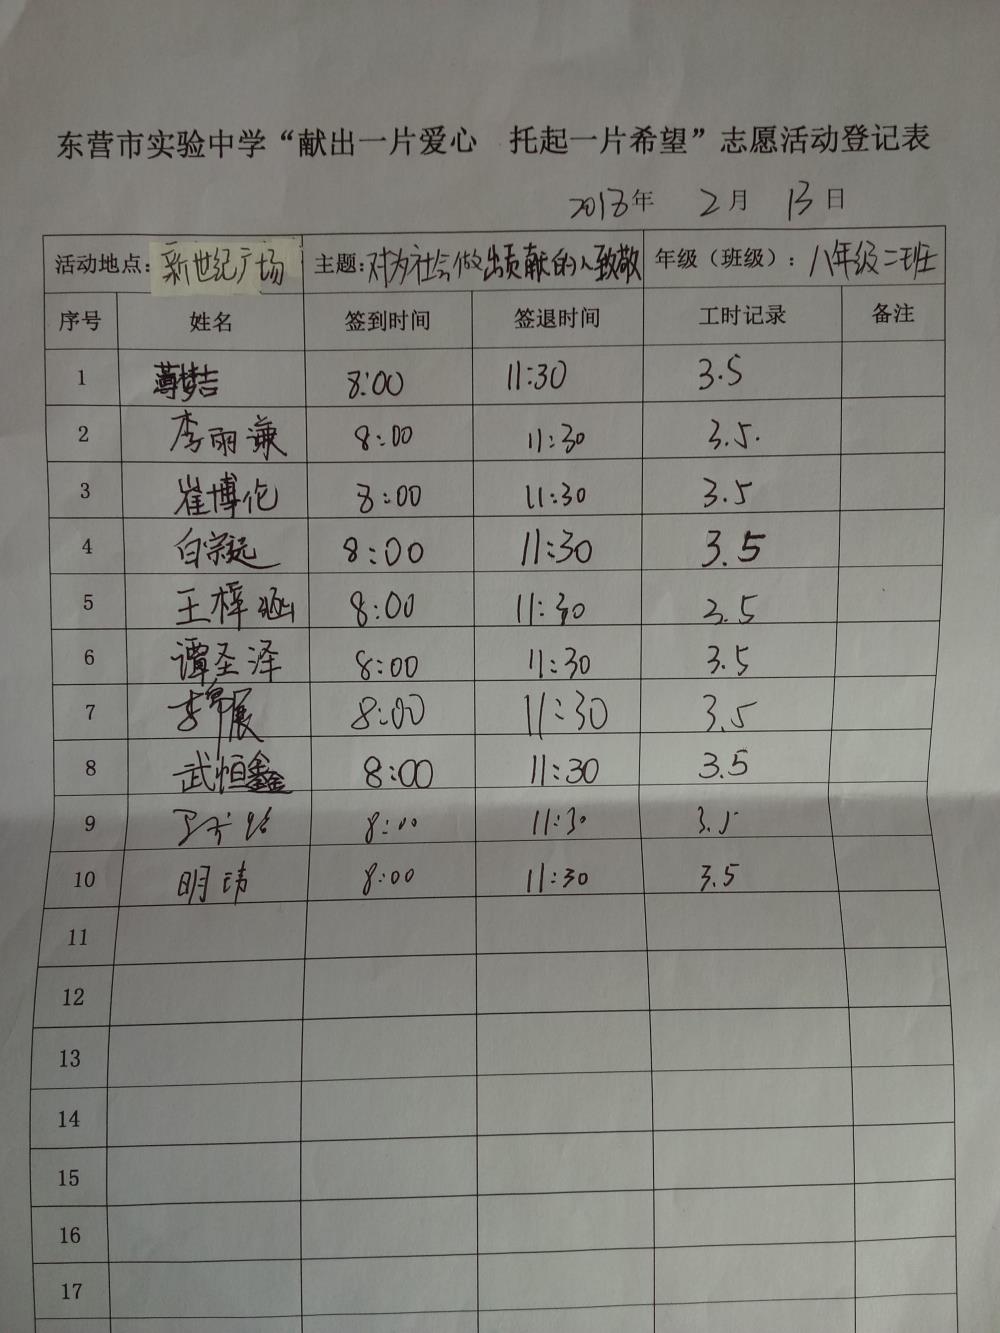 东营市实验中学“献出一片爱心 托起一片希望”志愿活动登记表
2018年 2月 13日
活动地点：新世纪广场 主题：对为社会做出贡献的人致敬 年级（班级）：八年级二班
序号 姓名 签到时间 签退时间 工时记录 备注
1 8:00 11:30 3.5
2 李雨谦 8:00 11:30 3.5.
3 崔博伦 8:00 11:30 3.5
4 白宗远 8:00 11:30 3.5
5 王梓涵 8:00 11:30 3.5
6 谭圣泽 8:00 11:30 3.5
7 8:00 11:30 3.5
8 武恒鑫 8:00 11:30 3.5
9 8:00 11:30 3.5
10 明玮 8:00 11:30 3.5
11
12
13
14
15
16
17